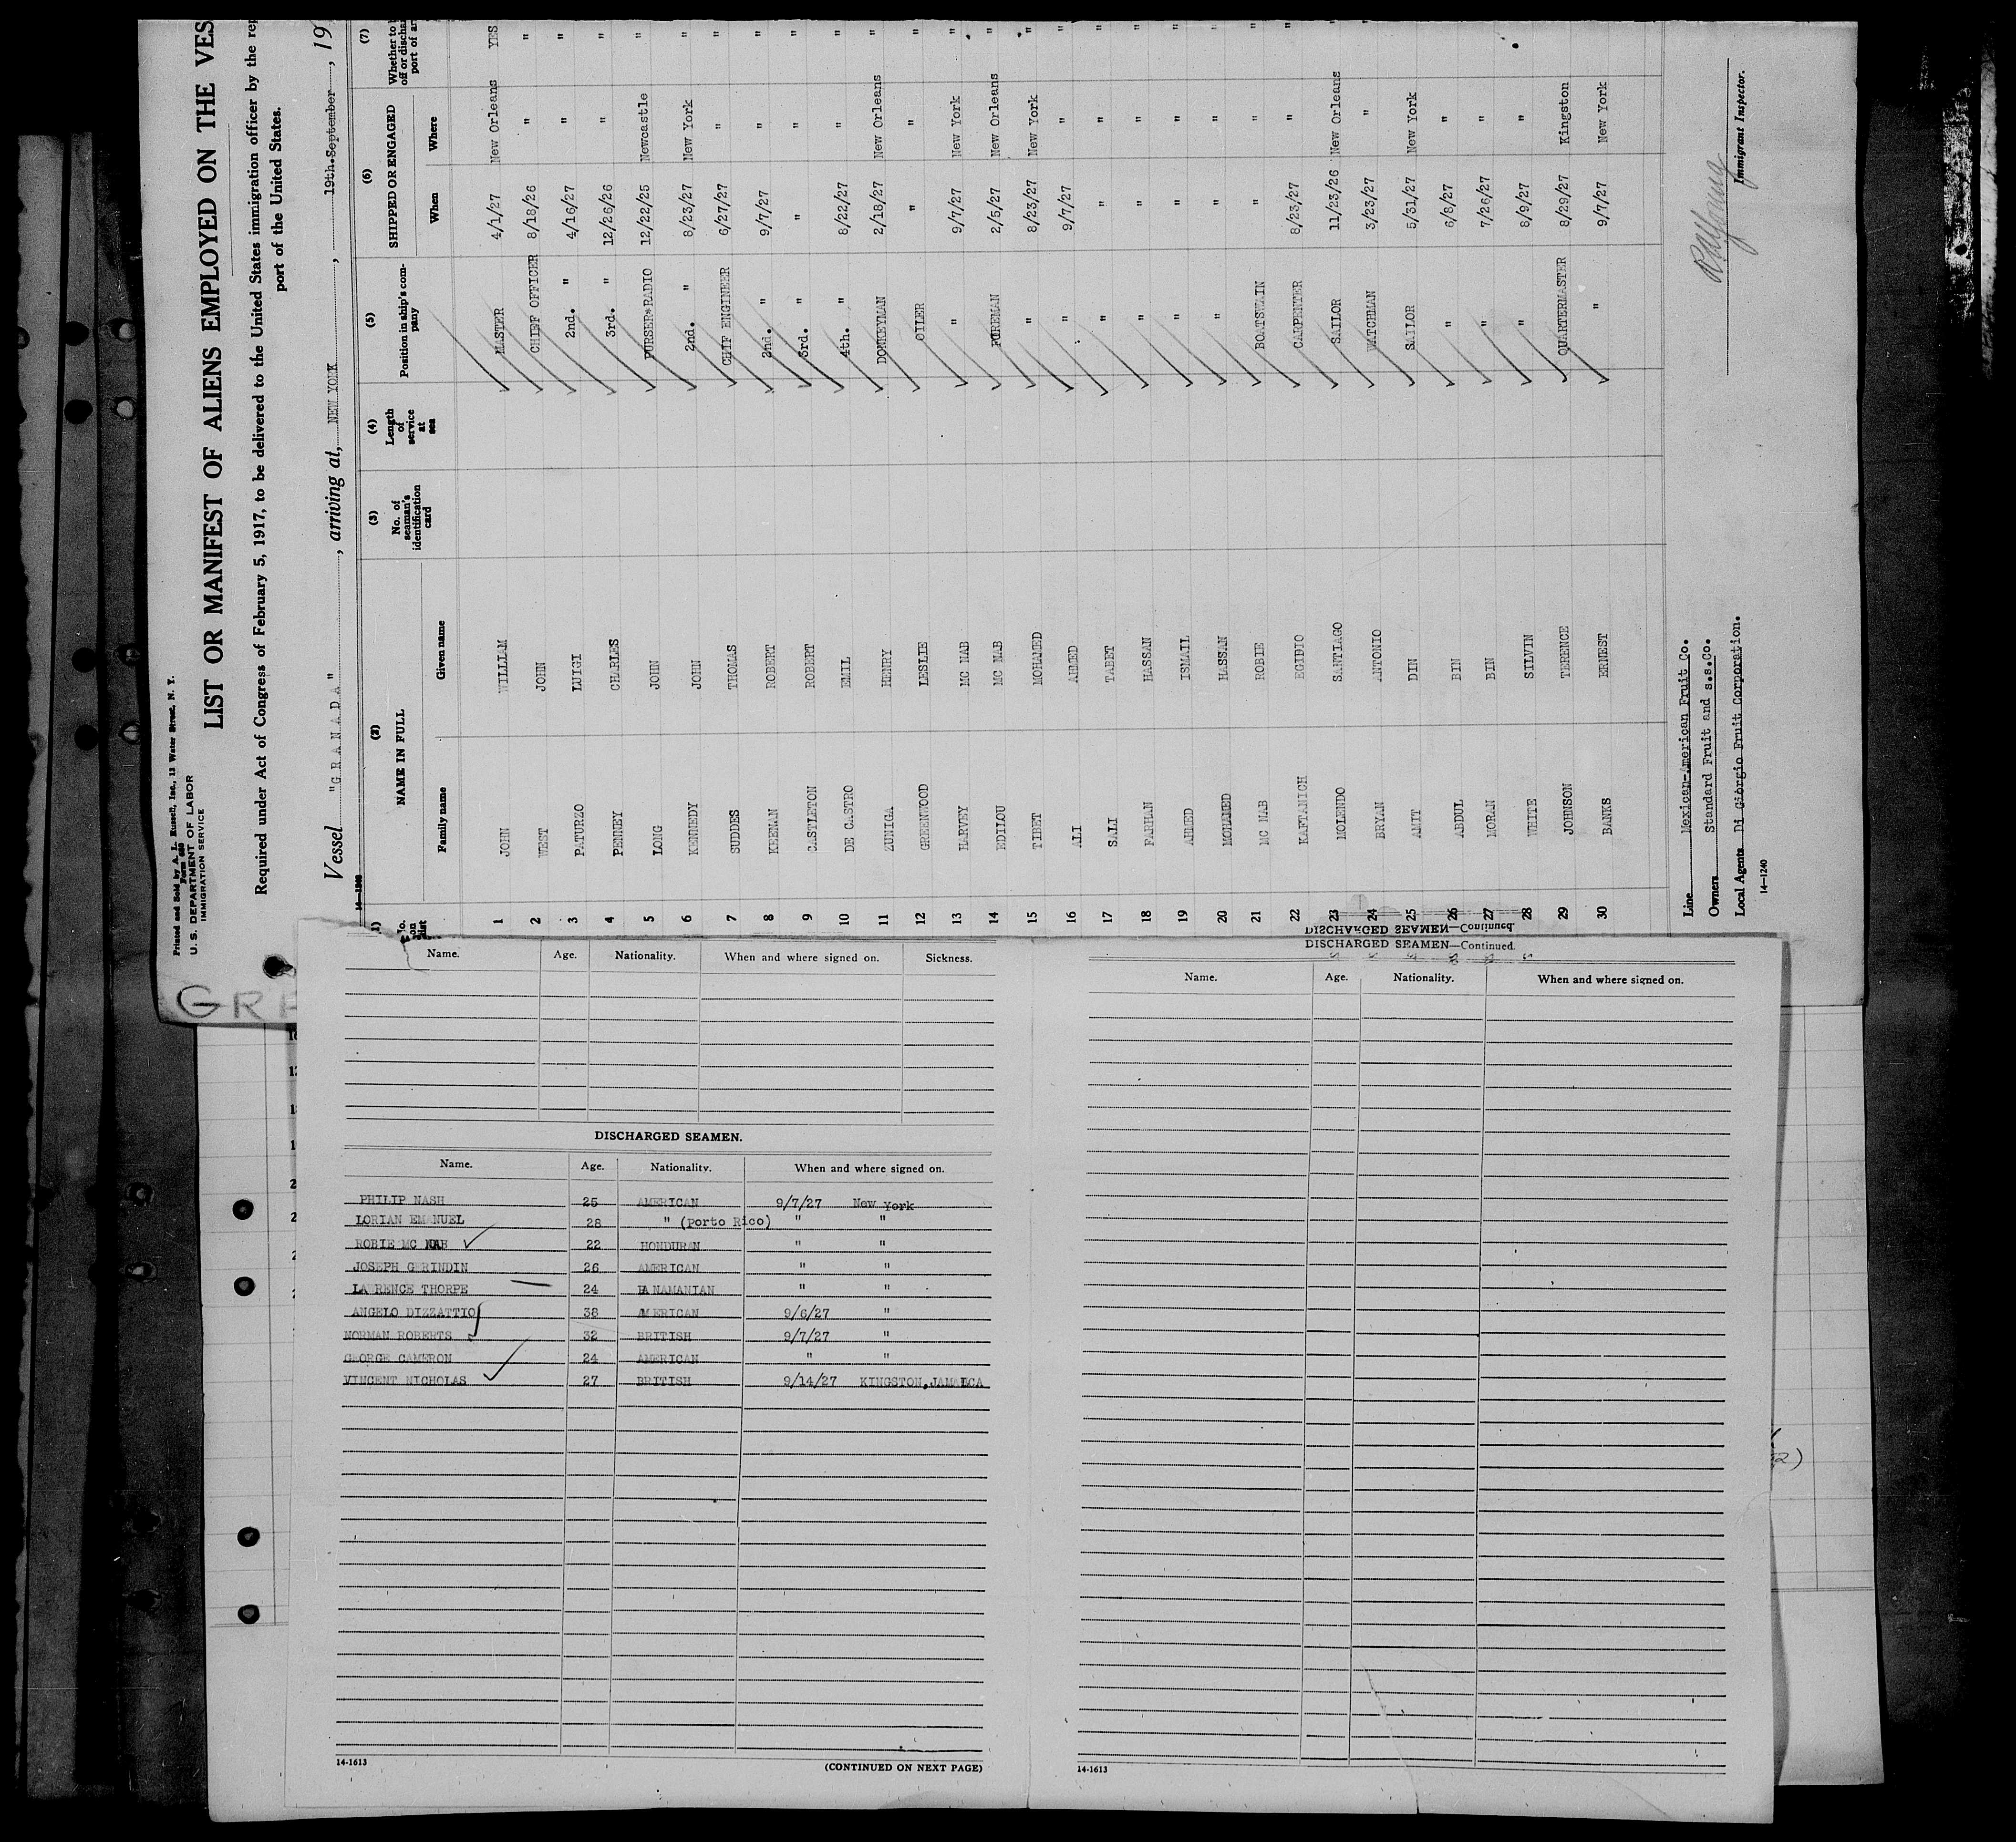 Printed and Sold by A. L. Russell, Inc., 13 Water Street, N. Y.
Form 680
U. S. DEPARTMENT OF LABOR
IMMIGRATION SERVICE
LIST OR MANIFEST OF ALIENS EMPLOYED ON THE VES
Required under Act of Congress of February 5, 1917, to be delivered to the United States immigration officer by the rep
port of the United States.
Vessel "G R A N A D A" , arriving at, NEW YORK , 19th.September , 19
14-1240
(2) (3) (4) (5) (6) (7)
No. on list NAME IN FULL No. of seaman's identification card Length of service at sea Position in ship's company SHIPPED OR ENGAGED Whether to
off or discha
port of ar
Family name Given name When Where
1 JOHN WILLIAM MASTER 4/1/27 New Orleans YES
2 WEST JOHN CHIEF OFFICER 8/18/26 " "
3 PATURZO LUIGI 2nd. " 4/16/27 " "
4 PENNEY CHARLES 3rd. " 12/26/26 " "
5 LONG JOHN PURSER&RADIO 12/22/25 Newcastle "
6 KENNEDY JOHN 2nd. " 8/23/27 New York "
7 SUDDES THOMAS CHIF ENGINEER 6/27/27 " "
8 KEENAN ROBERT 2nd. " 9/7/27 " "
9 CASTLETON ROBERT 3rd. " " " "
10 DE CASTRO EMIL 4th. " 8/22/27 " "
11 ZUNIGA HENRY DONKEYMAN 2/18/27 New Orleans "
12 GREENWOOD LESLIE OILER " " "
13 HARVEY MC NAB " 9/7/27 New York "
14 EDILOU MC NAB FOREMAN 2/5/27 New Orleans "
15 TIBET MOHAMED " 8/23/27 New York "
16 ALI AHMED " 9/7/27 " "
17 SALI TABET " " " "
18 FARHAN HASSAN " " " "
19 AHMED ISMAIL " " " "
20 MOHAMED HASSAN " " " "
21 MC NAB ROBIE BOATSWAIN " " "
22 KAFTANICH EGIDIO CARPENTER 8/23/27 " "
23 MOLENDO SANTIAGO SAILOR 11/23/26 New Orleans "
24 BRYAN ANTONIO WATCHMAN 3/23/27 " "
25 AMIT DIN SAILOR 5/31/27 New York
26 ABDUL BIN " 6/8/27 "
27 MORAN BIN " 7/26/27 "
28 WHITE SILVIN " 8/9/27 "
29 JOHNSON TERENCE QUARTERMASTER 8/29/27 Kingston
30 BANKS ERNEST " 9/7/27 New York
Line Mexican-American Fruit Co.
Owners Standard Fruit and s.s.Co.
Local Agents Di Giorgio Fruit Corporation.
14-1240
Immigrant Inspector.
Name. Age. Nationality. When and where signed on. Sickness.
DISCHARGED SEAMEN.
Name. Age. Nationality. When and where signed on.
PHILIP NASH 25 AMERICAN 9/7/27 New York
LORIAN EMANUEL 28 " (Porto Rico) " "
ROBIE MC NAB 22 HONDURAN " "
JOSEPH GERINDIN 26 AMERICAN " "
LAWRENCE THORPE 24 PANAMANIAN " "
ANGELO DIZZATTIO 38 AMERICAN 9/6/27 "
NORMAN ROBERTS 32 BRITISH 9/7/27 "
GEORGE CAMERON 24 AMERICAN " "
VINCENT NICHOLAS 27 BRITISH 9/14/27 KINGSTON,JAMAICA
14-1613
(CONTINUED ON NEXT PAGE)
DISCHARGED SEAMEN—Continued.
DISCHARGED SEAMEN—Continued.
Name. Age. Nationality. When and where signed on.
14-1613